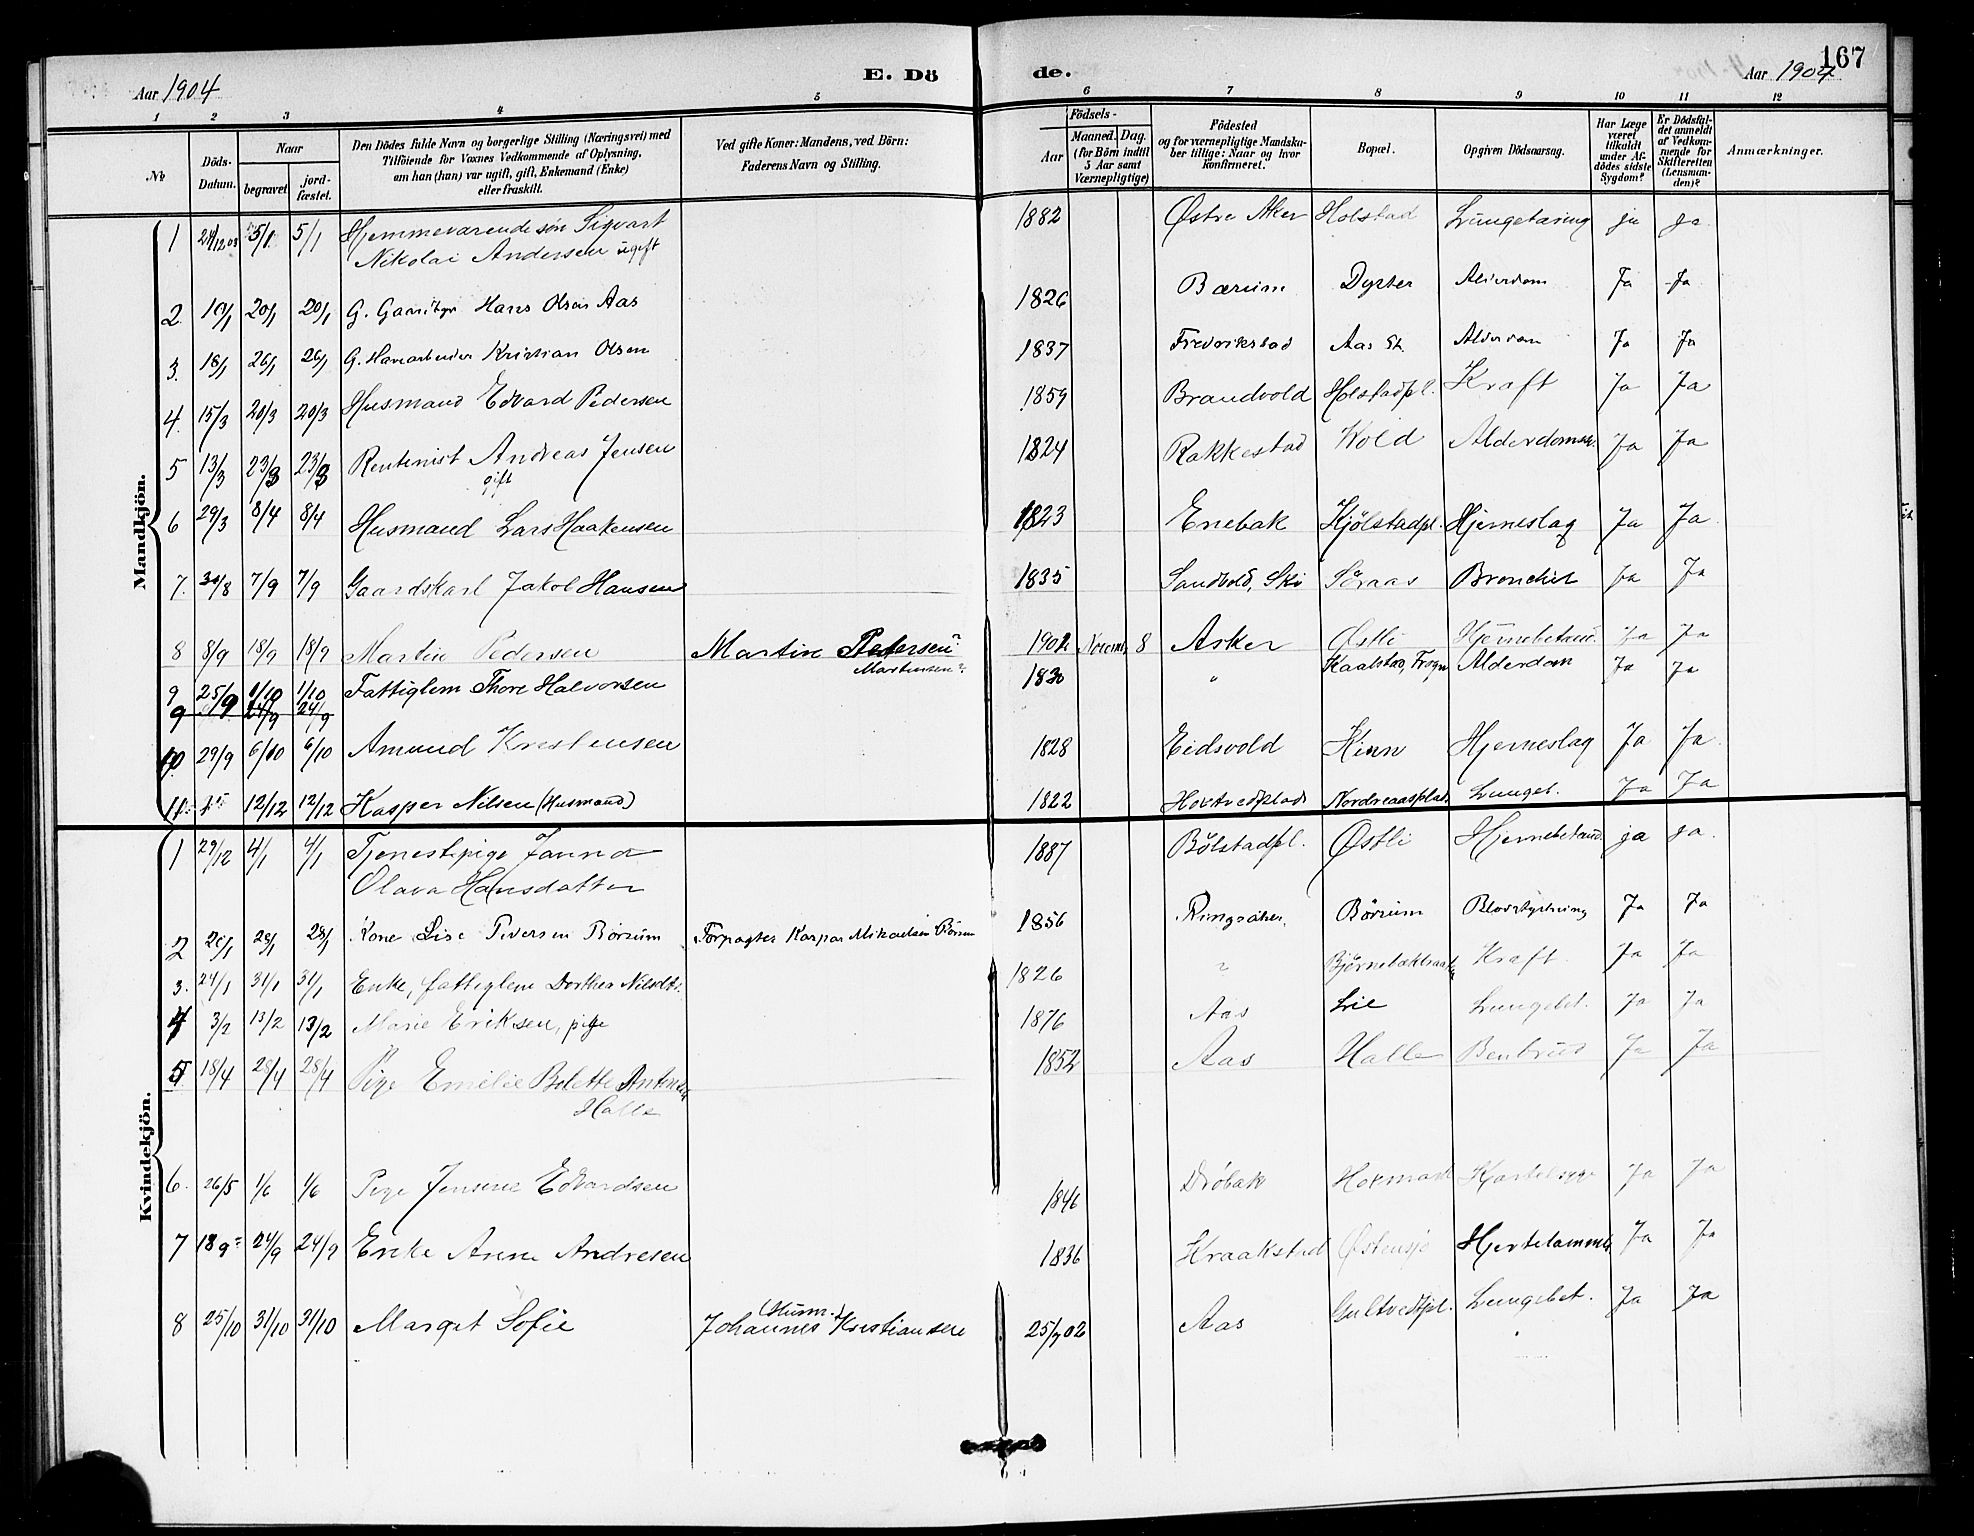 167
Aar 1904
E. Dö
de.
Aar 1904
1 2 3 4 5 6 7 8 9 10 11 12
No
Döds-
Datum.
Naar
begravet
jord-
fæstet.
Den Dödes fulde Navn og borgerlige Stilling (Næringsvei) med
Tilföiende for Voxnes Vedkommende af Oplysning,
om han (hun) var ugift, gift, Enkemand (Enke)
eller fraskilt.
Ved gifte Koner: Mandens, ved Börn:
Faderens Navn og Stilling.
Födsels-
Aar
Maaned. Dag.
(for Börn indtil
5 Aar samt
Værnepligtige)
Födested
og for værnepligtige Mandska-
ber tillige: Naar og hvor
konfirmeret.
Bopæl.
Opgiven Dödsaarsag.
Har Læge
været
tilkaldt
under Af-
dödes sidste
Sygdom?
Er Dödsfal-
det anmeldt
af Vedkom-
mende for
Skifteretten
(Lensman-
den)?
Anmærkninger.
Mandkjön.
1 5/1 5/1 Hjemmeværende søn Sigvart 1882 Østre Aker Holstad Lungetæring ja ja
Nikolai Andersen ugift
2 10/1 20/1 20/1 G. Gaardbr Hans Olsen Aas 1826 Bærum Dyster Alderdom Ja Ja
3. 18/1 26/1 26/1 G. Havearbeider Kristian Olsen 1837 Fredrikstad Aas St. Alderdom Ja Ja
4. 15/3 20/3 20/3 Husmand Edvard Pedersen 1859 Brandvold Holstadpl. Kræft Ja Ja
5 13/3 23/3 23/3 Rentenist Andreas Jensen 1824 Rakkestad Wold Alderdomssv. Ja Ja
gift
6 29/3 8/4 8/4 Husmand Lars Haakensen 1823 Enebak Kjølstadpl. Hjerneslag Ja Ja
7. 30/8 7/9 7/9 Gaardskarl Jakob Hansen 1835 Sandvold, Ski Søraas Bronchit Ja Ja
8 8/9 18/9 18/9 Martin Pedersen Martin Pedersen? 1902 Novemb. 8 Asker Østli Hjernebetænd. Ja Ja
Martinsen?
9 25/9 1/10 1/10 Fattiglem Thore Halvorsen 1830 " Kaalstad, Frogn Alderdom Ja Ja
9 24/9 24/9
10 29/9 6/10 6/10 Amund Kristensen 1828 Eidsvold Kinn Hjerneslag Ja Ja
11. 12/12 12/12 Kasper Nilsen (Husmand) 1822 Nordreaasplads Lungeb. Ja Ja
Kvindekjön.
1 29/12 4/1 4/1 Tjenestepige Janna 1887 Bølstadpl. Østli Hjernebetænd. ja ja.
Olava Hansdatter
2 20/1 28/1 28/1 Kone Lise Pedersen Børsum Forpagter Kaspar Mikaelsen Børsum 1856 Ringsaker Børsum Blodstyrtning Ja Ja
3. 24/1 31/1 31/1 Enke, fattiglem Dorthea Nilsdtr. 1826 " Kræft Ja Ja
4 3/2 13/2 13/2 Marie Eriksen, pige 1876 Aas Lie Lungebet. Ja Ja
5 18/4 28/4 28/4 Pige Emilie Bolette Antonsen 1852 Aas Halle Benbrud Ja Ja
Halle
6. 26/5 1/6 1/6 Pige Jensine Edvardsen 1846 Drøbak Ja Ja
7 18 9 24/9 24/9 Enke Anne Andresen 1836 Kraakstad Østensjø Hjertelammh. Ja Ja
(Husm.)
8 25/10 31/10 31/10 Margit Sofie Johannes Kristiansen 25/7 02 Aas Gultvedtpl. Lungebet. Ja Ja